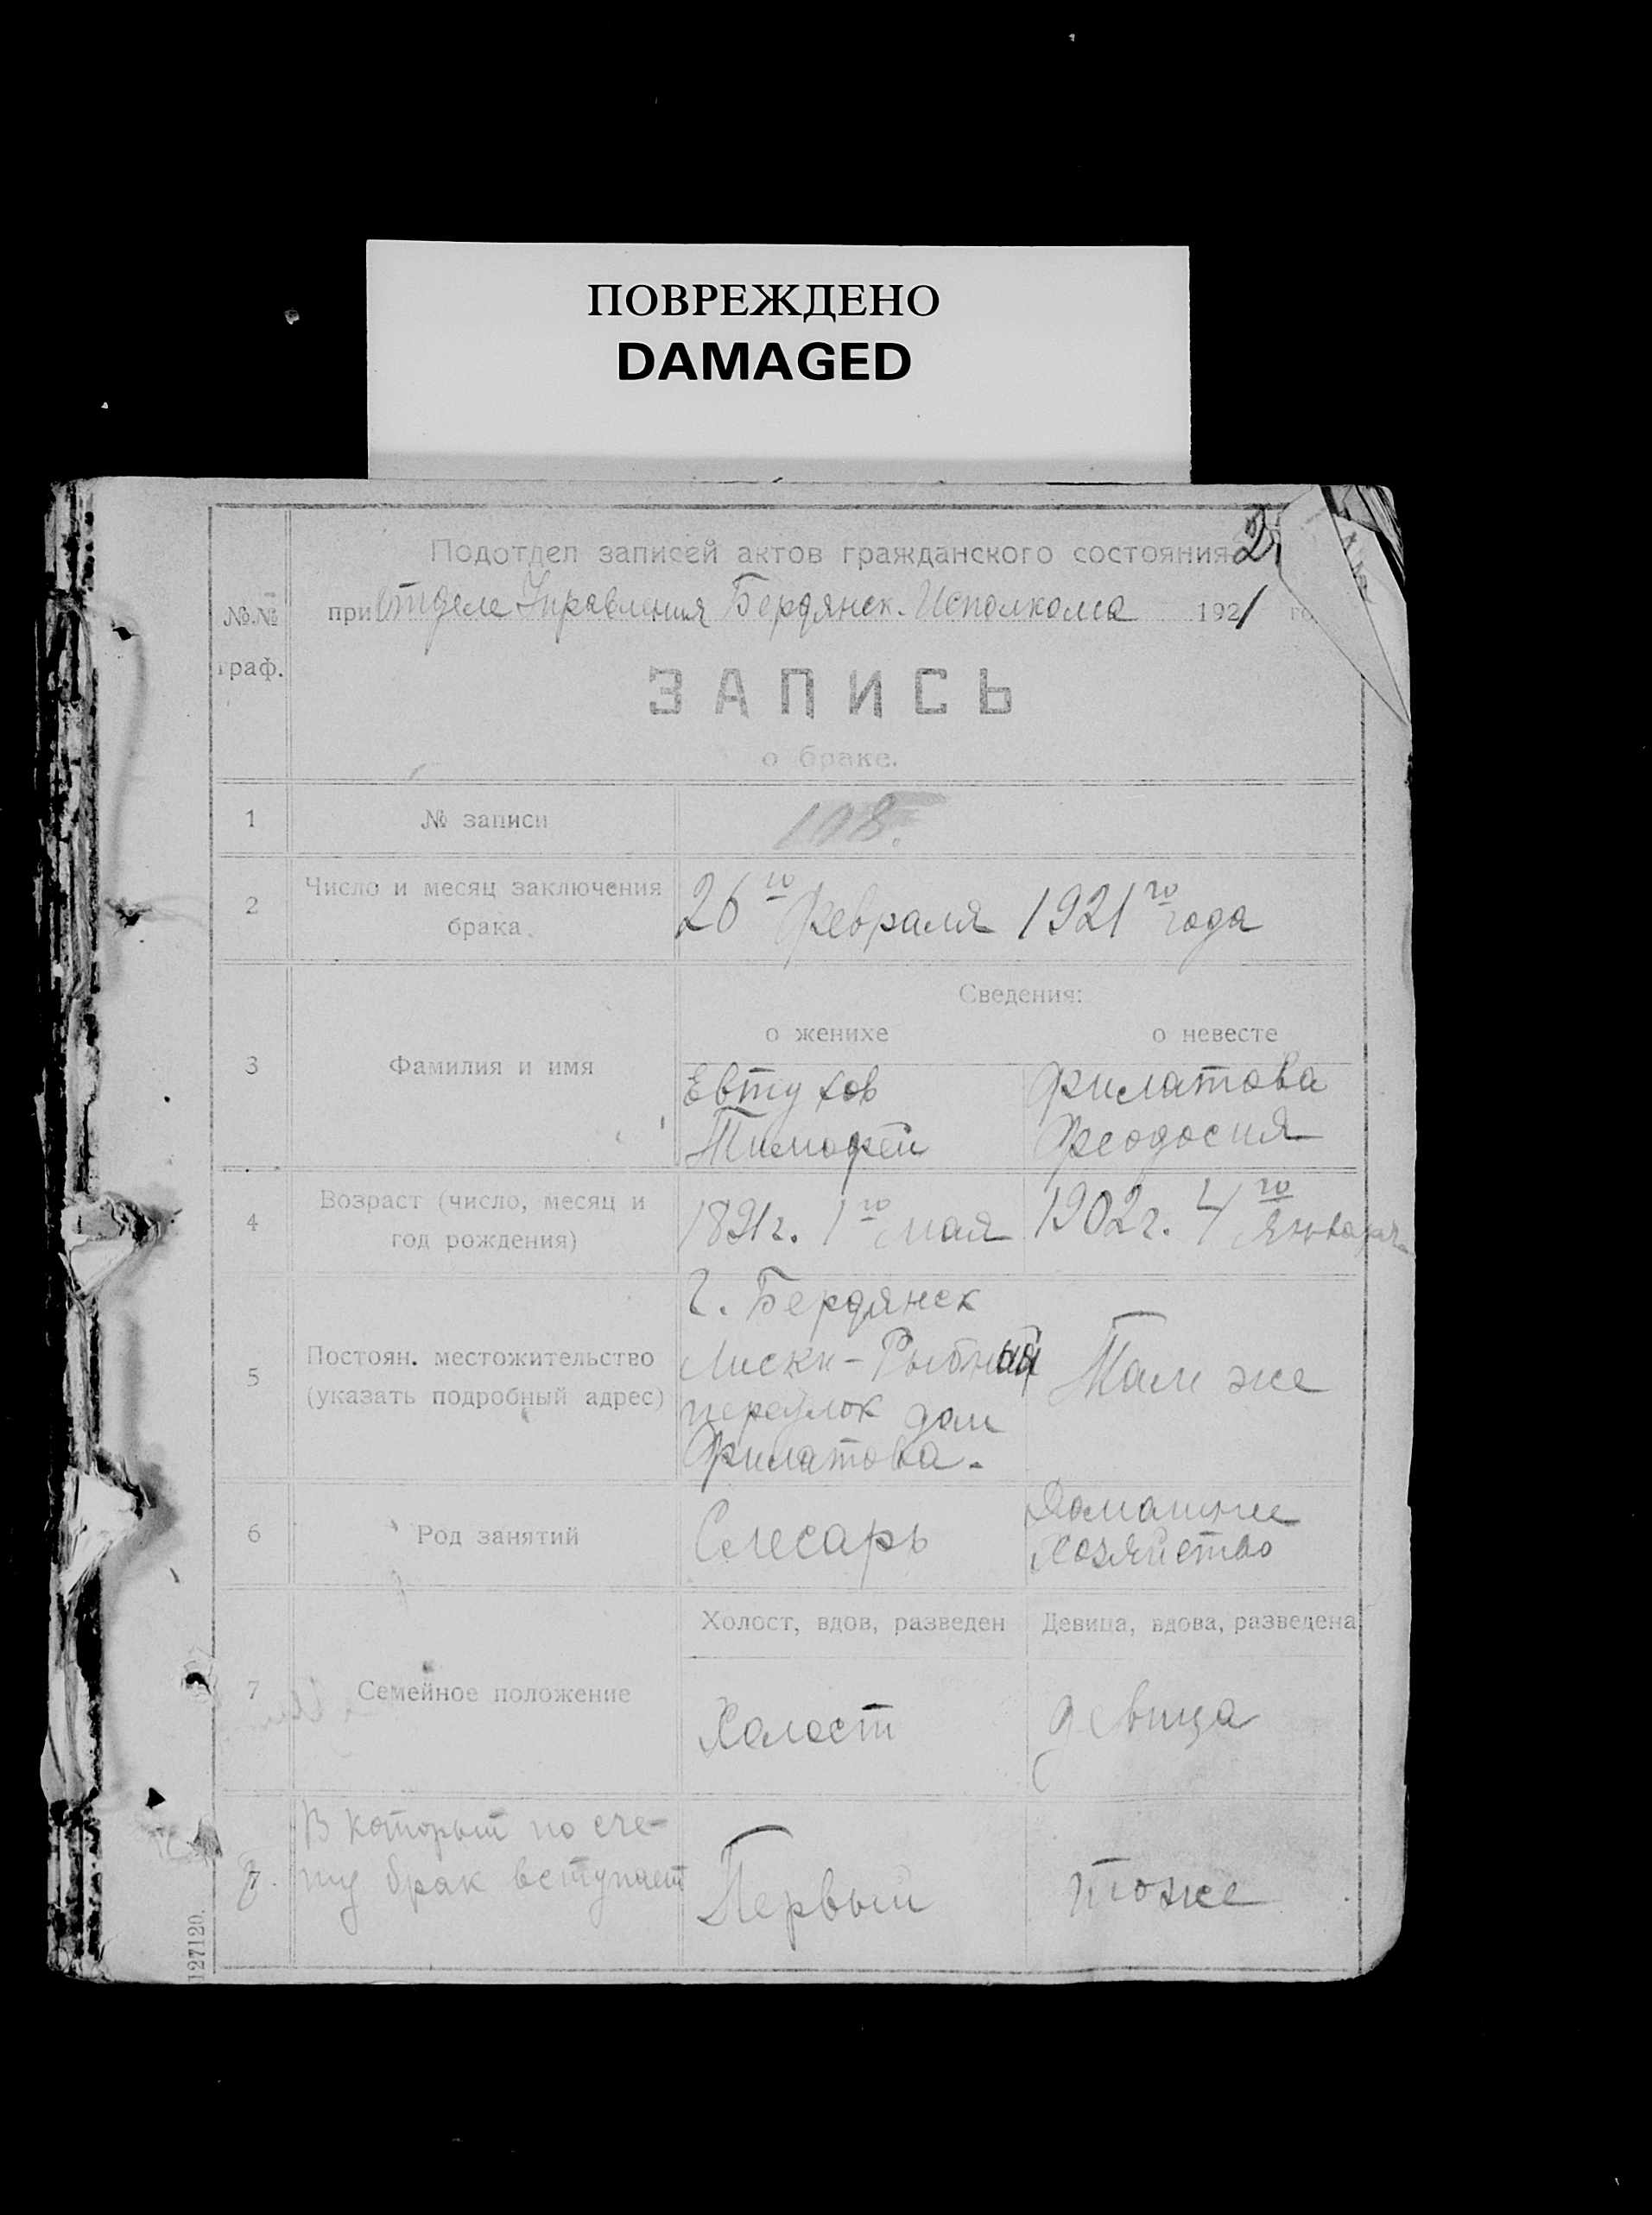 ПОВРЕЖДЕНО
DAMAGED
Подотдел записей актов гражданского состояния
при Отделе Управления Бердянск. Исполкома 1921
№№ граф.
ЗАПИСЬ
о браке.
1 № записи 108.
2 Число и месяц заключения брака. 26го февраля 1921го года
Сведения:
о женихе о невесте
3 Фамилия и имя
Евтухов Филатова
Тимофей Феодосия
4 Возраст (число, месяц и год рождения) 1891г. 1го мая 1902г. 4го января
5 Постоян. местожительство (указать подробный адрес)
г. Бердянск
Лиски-Рыбный Там же
переулок дом
Филатова.
6 Род занятий Слесарь Домашнее
хозяйство
Холост, вдов, разведен Девица, вдова, разведена
7 Семейное положение Холост девица
В который по сче-
ту брак вступает Первый тоже
127120.